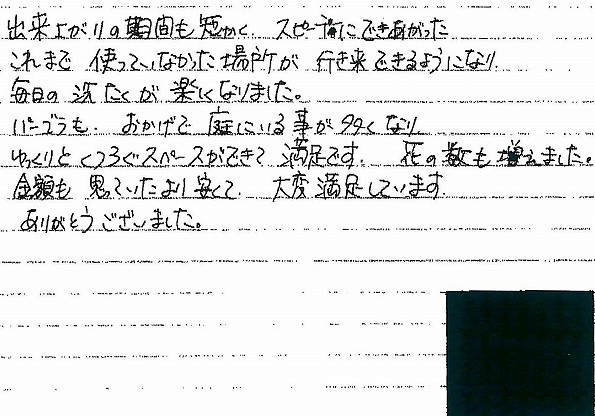 出来上がりの期間も短かく スピーディにできあがった
これまで 使っていなかった場所が 行き来できるようになり
毎日の洗たくが楽になりました。
パーゴラも、おかげで庭にいる事が多くなり
ゆっくりとくつろぐスペースができて満足です。 花の数も増えました。
金額も思っていたより安くて、大変満足しています
ありがとうございました。